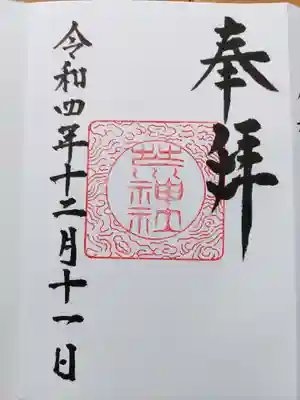 奉拝
令和四年十二月十一日